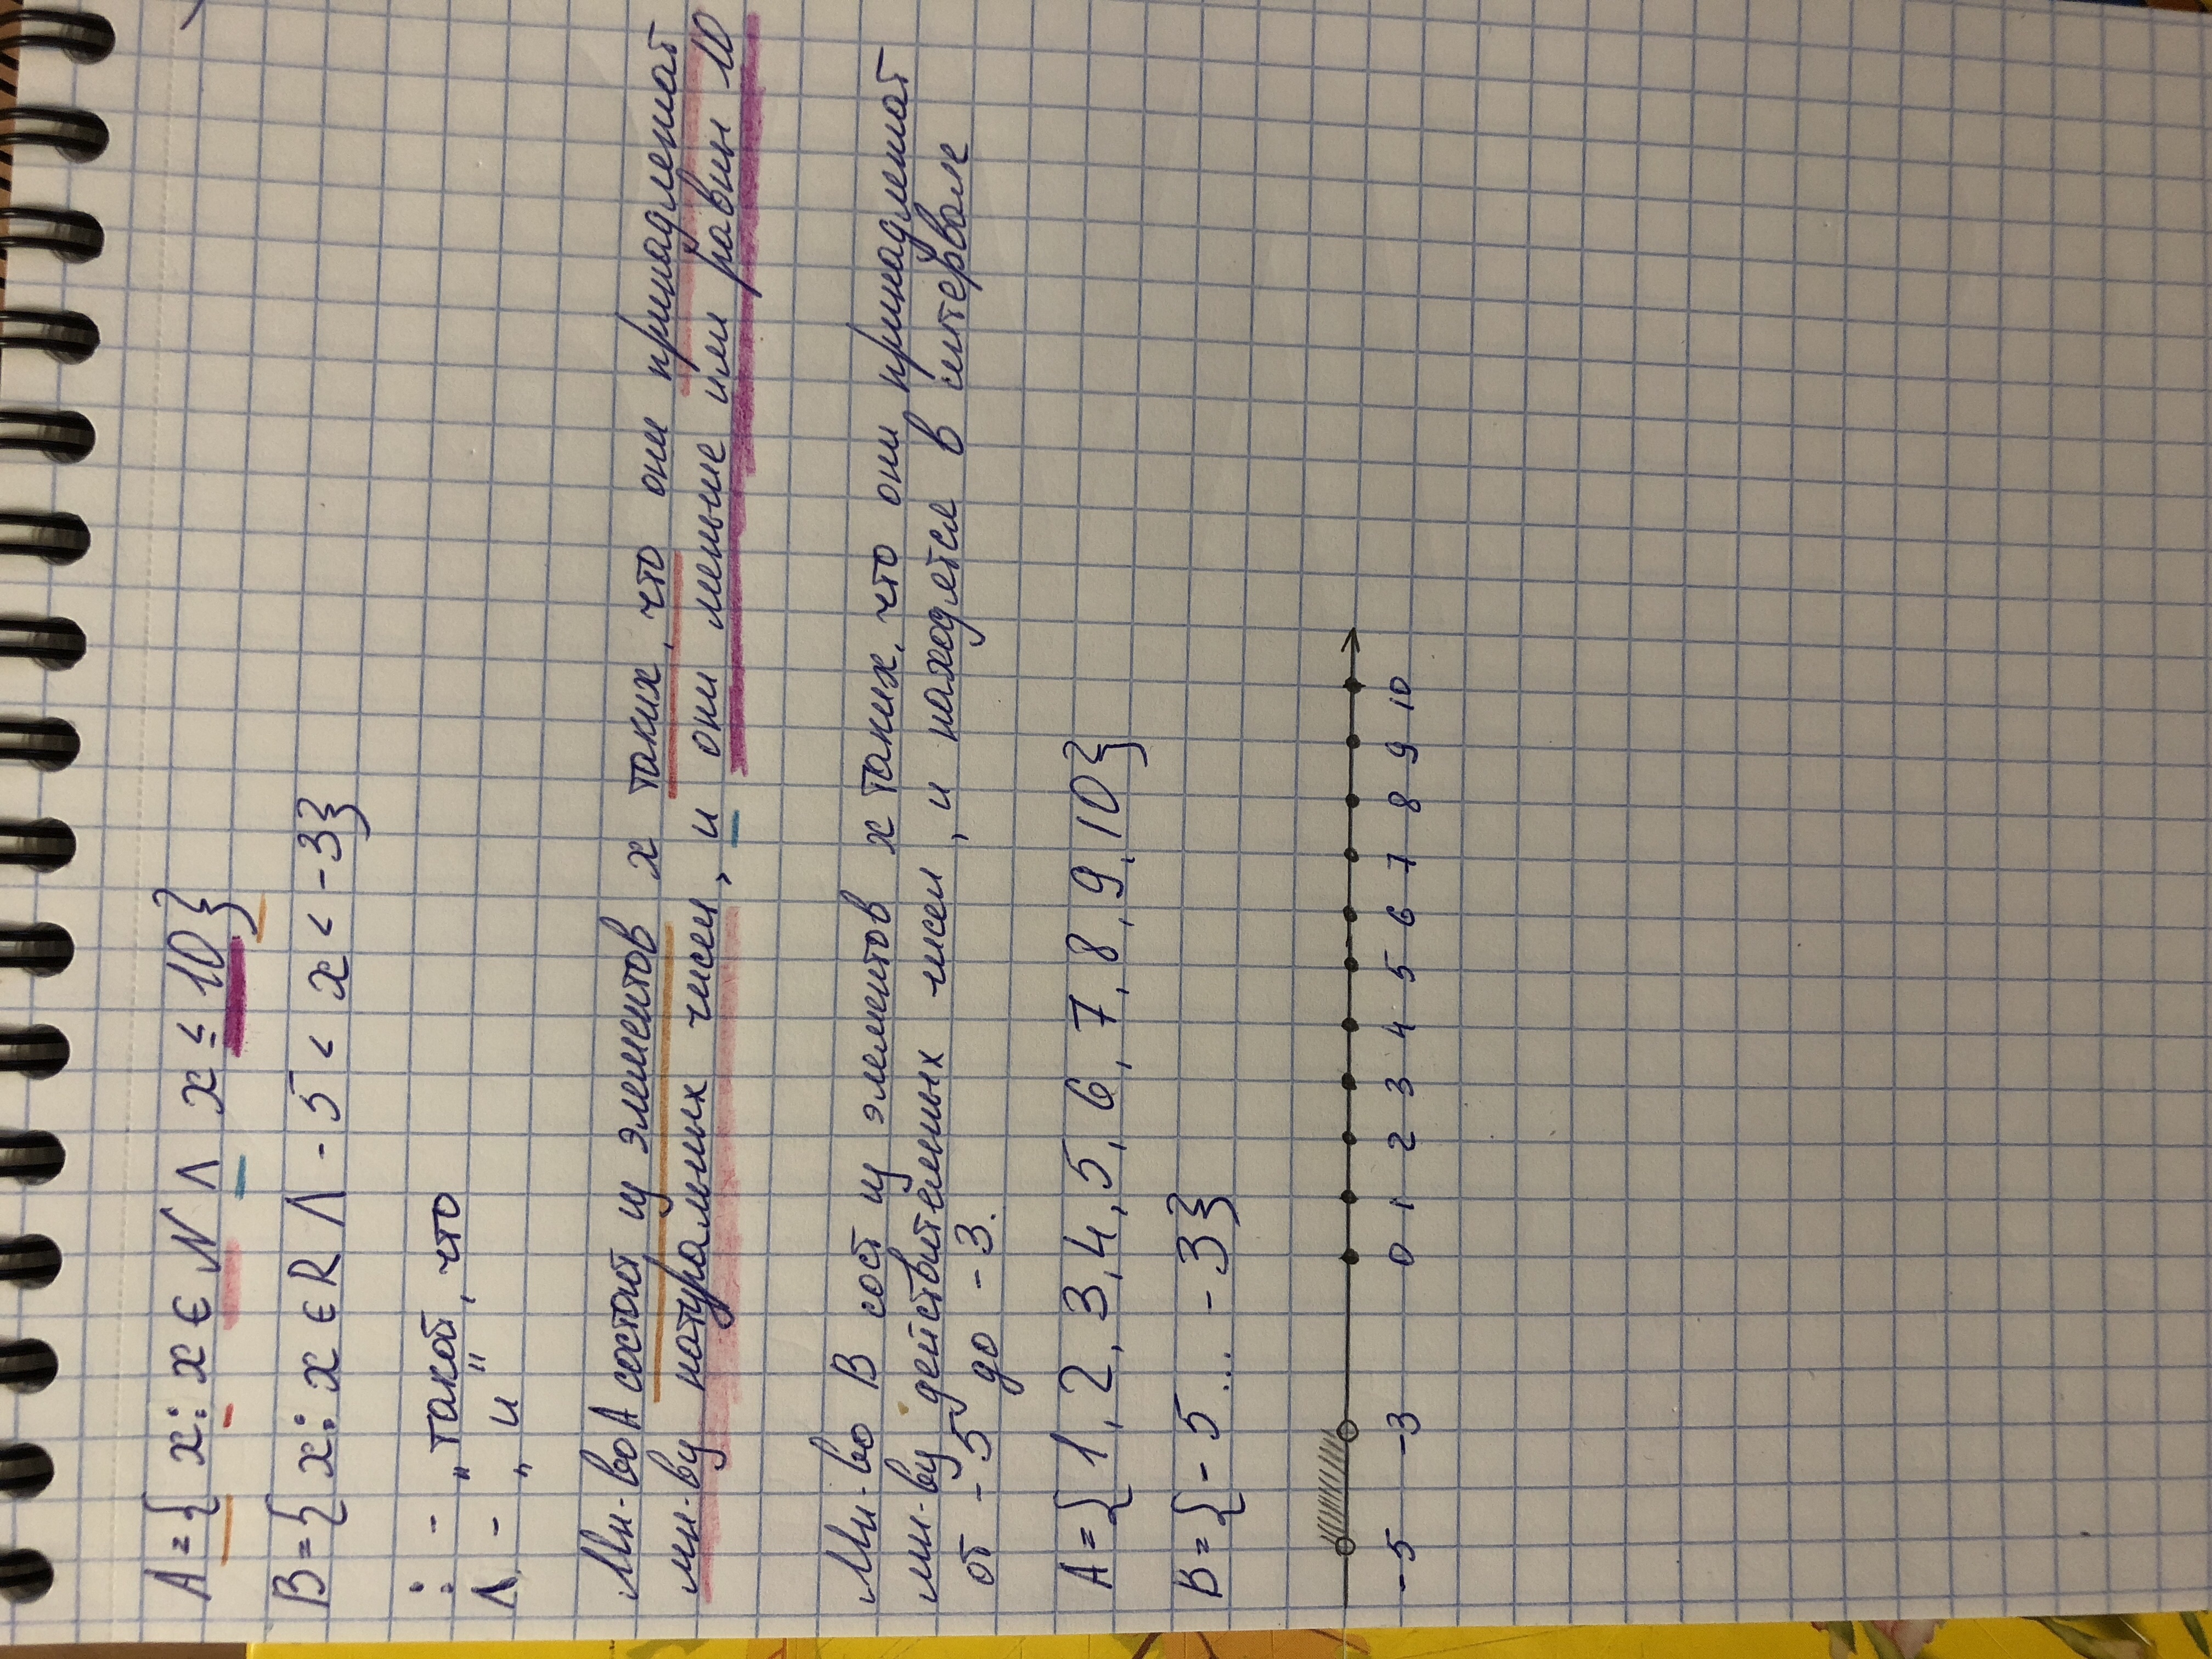 A = { x : x ∈ N ∧ x ≤ 10 }
B = { x : x ∈ R ∧ -5 < x < -3 }
: - „такой, что"
∧ - „и"
Мн-во A состоит из элементов x таких, что они принадлежат
мн-ву натуральных чисел, и они меньше или равны 10
Мн-во B сост из элементов x таких, что они принадлежат
мн-ву действительных чисел, и находятся в интервале
от -5 до -3.
A = { 1, 2, 3, 4, 5, 6, 7, 8, 9, 10 }
B = { -5 ... -3 }
-5 -3 0 1 2 3 4 5 6 7 8 9 10